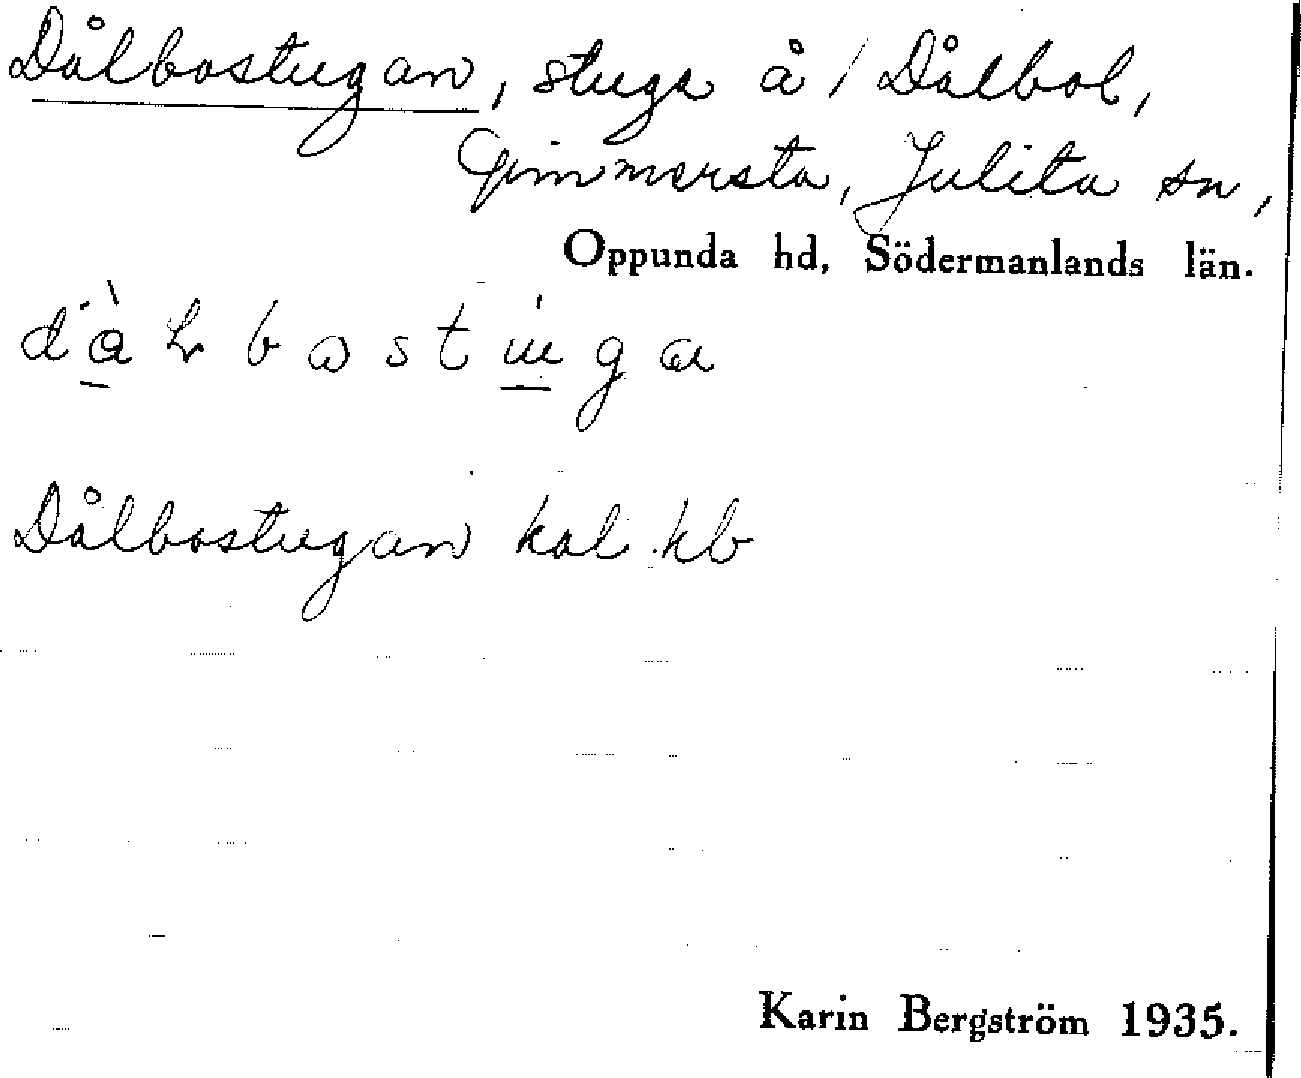 Dålbostugan, stuga å / Dålbol,
Gimmersta, Julita sn,
Oppunda hd, Södermanlands län.
Dålbostugan kal. kb
Karin Bergström 1935.